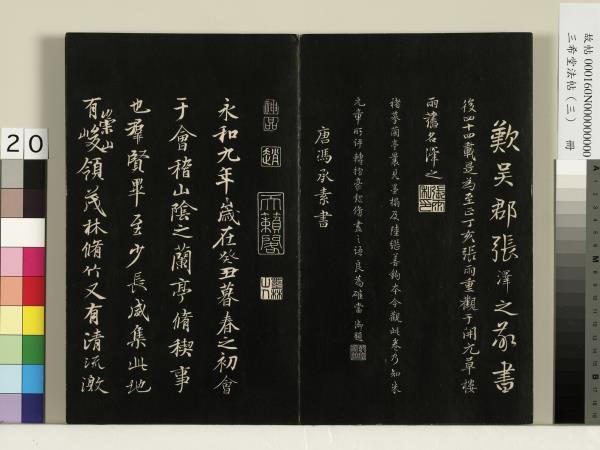 歎吳郡張澤之敬書
後四十四載是為至正丁亥張雨重觀于開元草樓
雨舊名澤之
褚摹蘭亭曩見墨搨及陸繼善鉤本今觀此卷乃知朱
元章所評轉摺豪鋩備盡之語良為確當 御題
唐馮承素書
神品
趙
天籟閣
永和九年歲在癸丑暮春之初會
于會稽山陰之蘭亭脩稧事
也羣賢畢至少長咸集此地
有崇山峻領茂林脩竹又有清流激
故帖 000160N000000000
三希堂法帖（三） 冊
20